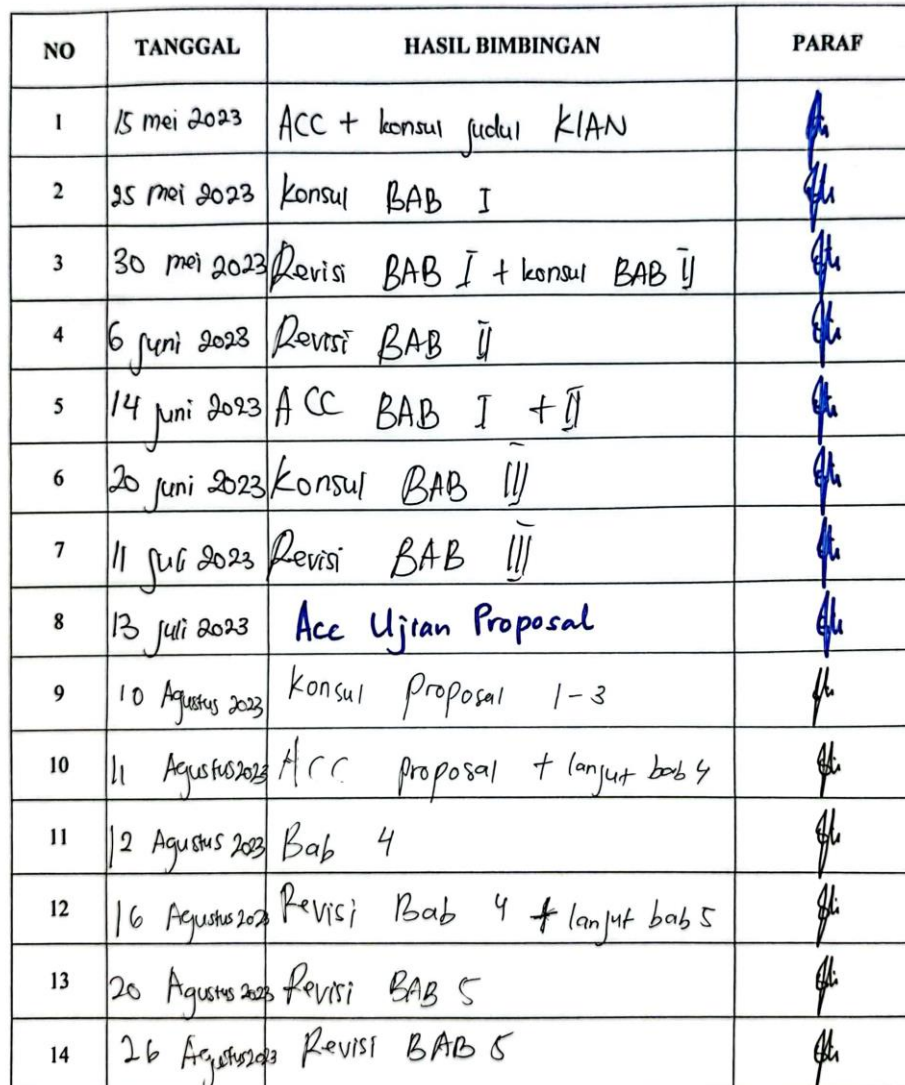 NO TANGGAL HASIL BIMBINGAN PARAF
1 15 mei 2023 ACC + konsul judul KIAN
2 25 mei 2023 konsul BAB I
3 30 mei 2023 Revisi BAB I + konsul BAB II
4 6 juni 2023 Revisi BAB II
5 14 juni 2023 ACC BAB I + II
6 20 juni 2023 Konsul BAB III
7 11 juli 2023 Revisi BAB III
8 13 juli 2023 Acc Ujian Proposal
9 10 Agustus 2023 Konsul proposal 1-3
10 11 Agustus 2023 ACC proposal + lanjut bab 4
11 12 Agustus 2023 Bab 4
12 16 Agustus 2023 Revisi Bab 4 + lanjut bab 5
13 20 Agustus 2023 Revisi BAB 5
14 26 Agustus 2023 Revisi BAB 5